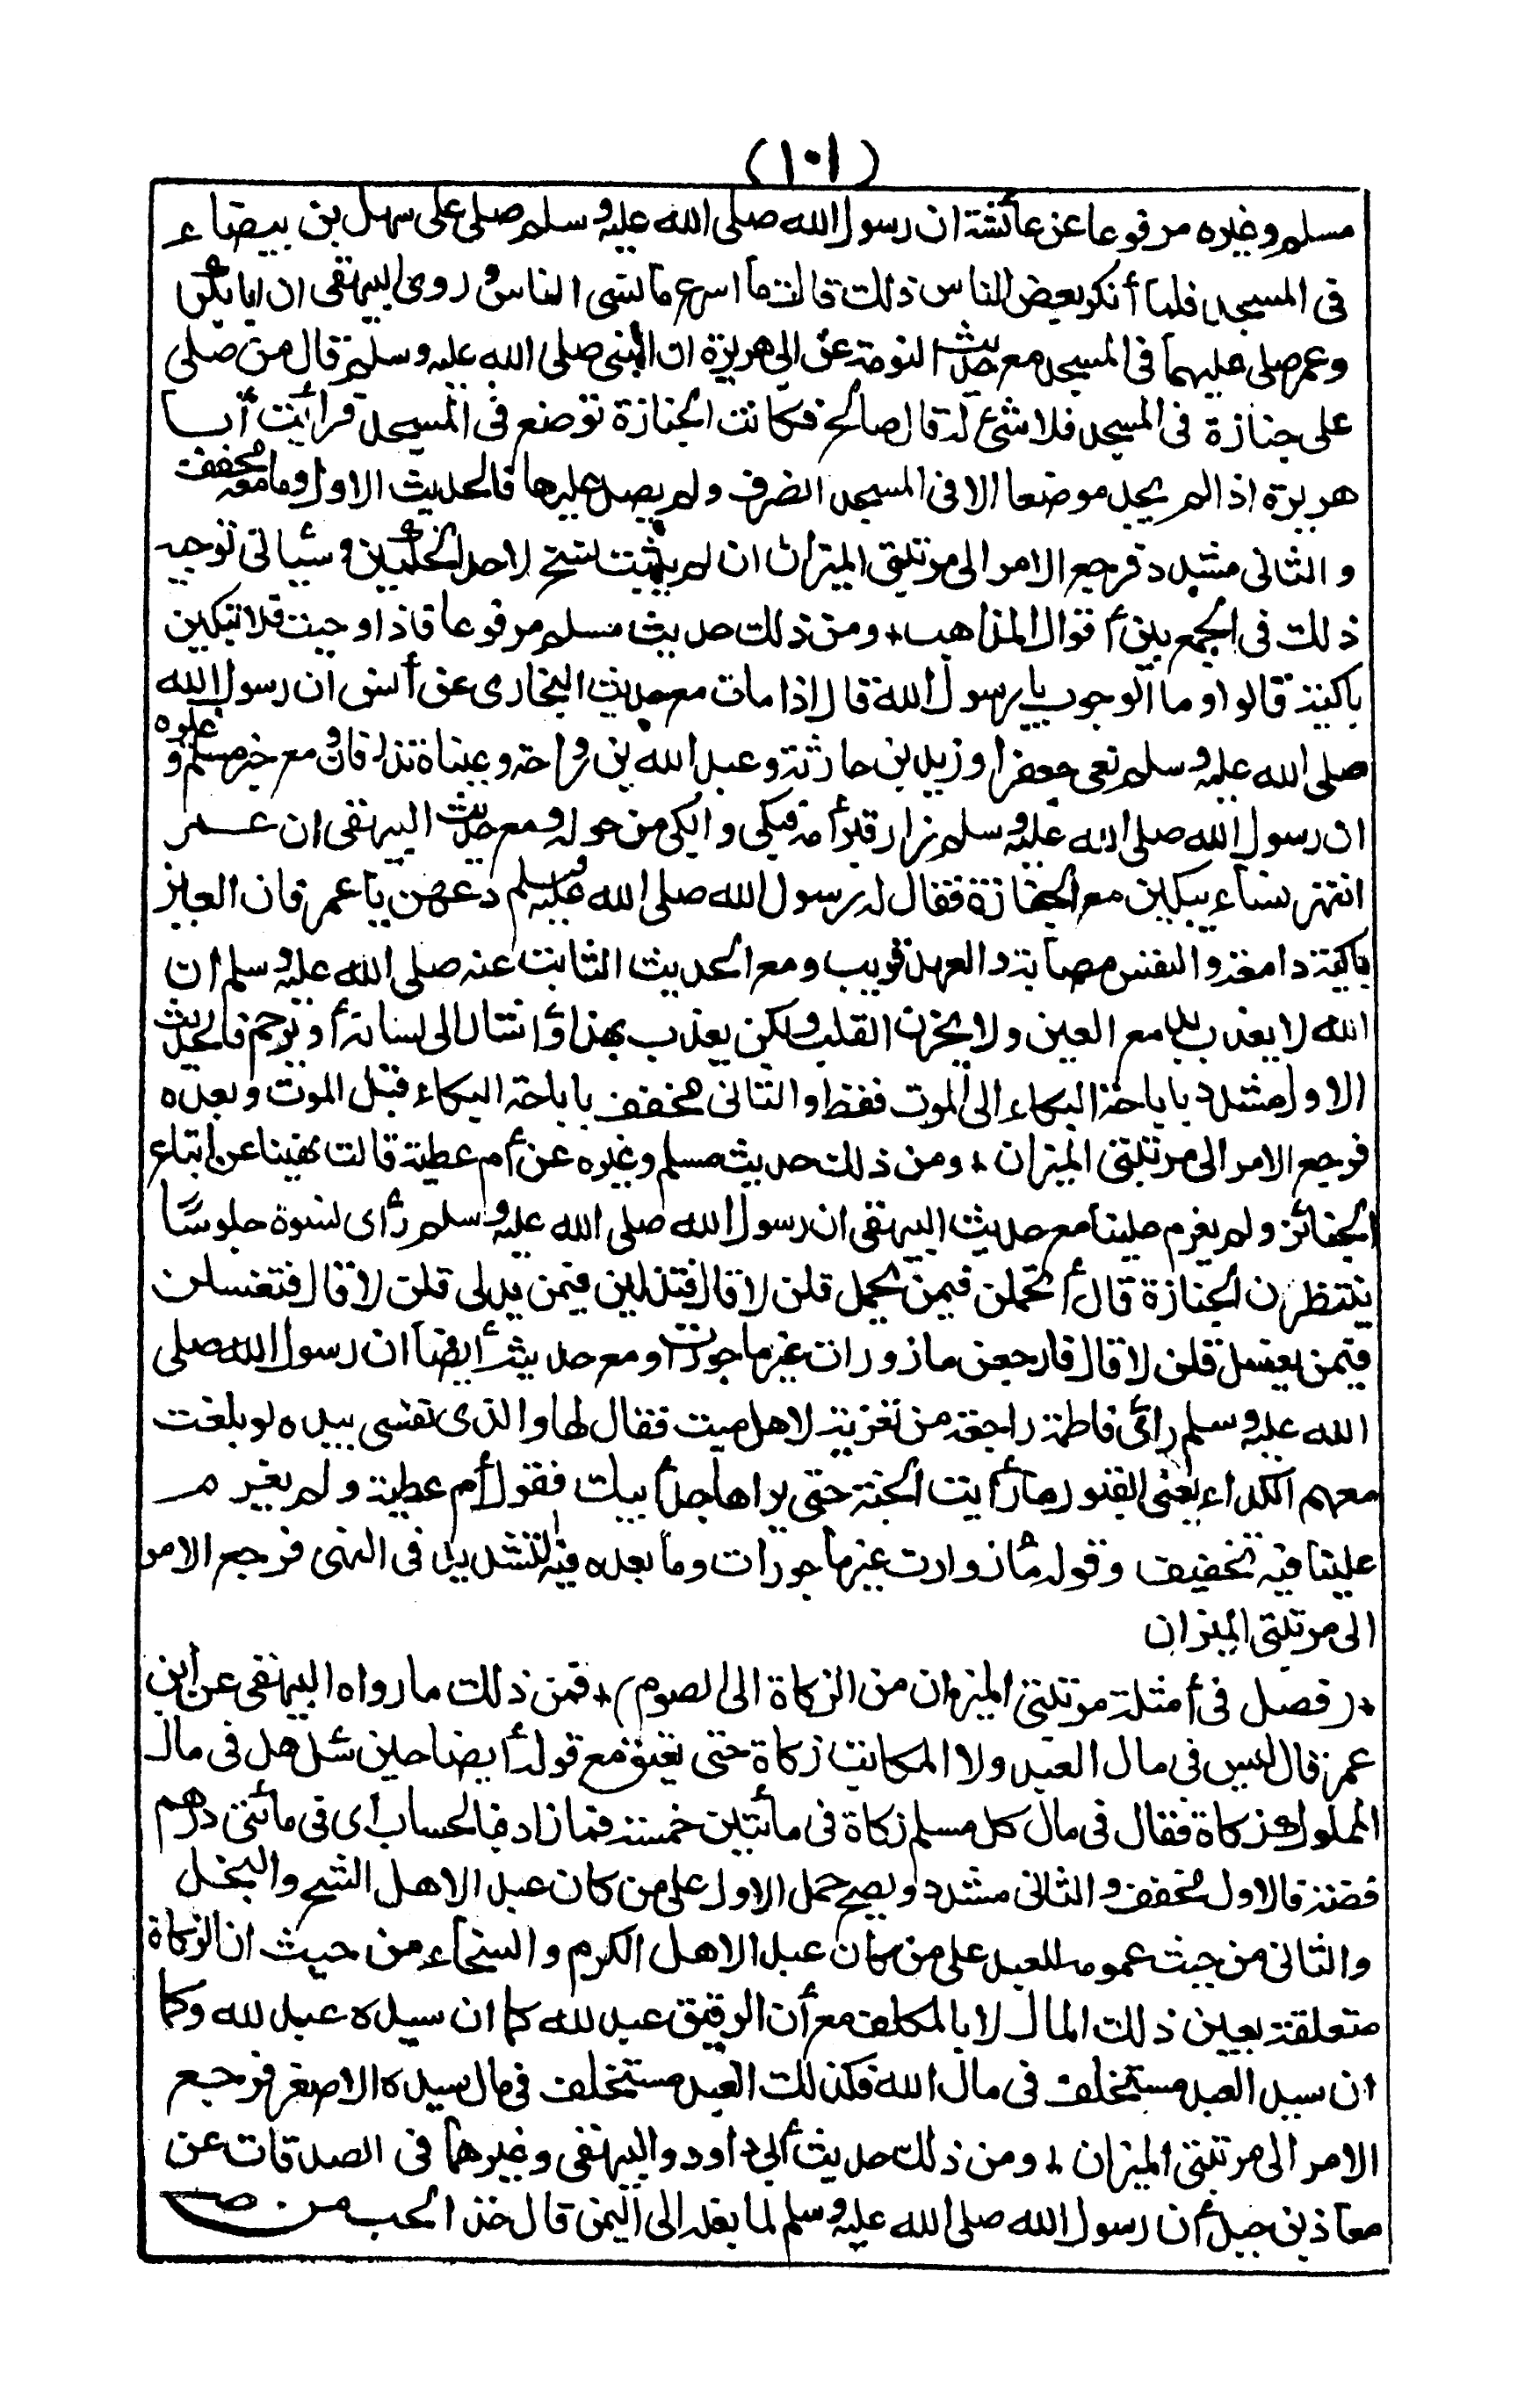 (١٠١)
مسلم وغيره مرفوعا عن عائشة ان رسول الله صلى الله عليه وسلم صلى على سهل بن بيضاء
فى المسجد فلما أنكر بعض الناس ذلك قالت ما اسرع ما نسى الناس وروى البيهقى ان ابا بكر
وعمر صلى عليهما فى المسجد مع حديث التومة عن ابى هريرة ان النبى صلى الله عليه وسلم قال من صلى
على جنازة فى المسجد فلا شئ له قال صالح فكانت الجنازة توضع فى المسجد فرأيت أبا
هريرة اذا لم يجد موضعا الا فى المسجد انصرف ولم يصل عليها فالحديث الاول وما معه مخفف
والثانى مشدد فرجع الامر الى مرتبتى الميزان ان لم يثبت نسخ لاحد الحكمين وسيأتى توجيه
ذلك فى الجمع بين أقوال المذاهب ومن ذلك حديث مسلم مرفوعا فاذا وجبت فلا تبكين
باكية قالوا وما الوجوب يا رسول الله قال اذا مات مع حديث البخارى عن أنس ان رسول الله
صلى الله عليه وسلم نعى جعفرا وزيد بن حارثة وعبد الله بن رواحة وعيناه تذرفان ومع خبر مسلم وغيره
ان رسول الله صلى الله عليه وسلم زار قبر أمه فبكى وابكى من حوله ومع حديث البيهقى ان عمر
انتهر نساء يبكين مع الجنازة فقال له رسول الله صلى الله عليه وسلم دعهن يا عمر فان العين
باكية دامغة والنفس مصابة والعهد قريب ومع الحديث الثابت عنه صلى الله عليه وسلم ان
الله لا يعذب بدمع العين ولا بحزن القلب ولكن يعذب بهذا وأشار الى لسانه أو يرحم فالحديث
الاول مشدد باباحة البكاء الى الموت فقط والثانى مخفف باباحة البكاء قبل الموت وبعده
فرجع الامر الى مرتبتى الميزان ومن ذلك حديث مسلم وغيره عن أم عطية قالت نهينا عن اتباع
الجنائز ولم يعزم علينا مع حديث البيهقى ان رسول الله صلى الله عليه وسلم رأى نسوة جلوسًا
ينتظرن الجنازة قال أتحملن فيمن يحمل قلن لا قال فتدلين فيمن يدلى قلن لا قال فتغسلن
فيمن يغسل قلن لا قال فارجعن مازورات غير ماجورات ومع حديث أيضًا ان رسول الله صلى
الله عليه وسلم رأى فاطمة راجعة من تعزية لاهل ميت فقال لها والذى نفسى بيده لو بلغت
معهم الكداء يعنى القبور ما رأيت الجنة حتى يراها جد أبيك فقول أم عطية ولم يعزم
علينا فيه تخفيف وقوله مأزوارت غير ماجورات وما بعده فيه التشديد فى النهى فرجع الامر
الى مرتبتى الميزان
(فصل فى أمثلة مرتبتى الميزان من الزكاة الى الصوم) فمن ذلك ما رواه البيهقى عن ابن
عمر قال ليس فى مال العبد ولا المكاتب زكاة حتى يعتق مع قوله أيضا حين سئل هل فى مال
المملوك زكاة فقال فى مال كل مسلم زكاة فى مأتين خمسة فما زاد فبالحساب أى فى مائتى درهم
فضة فالاول مخفف والثانى مشدد ويصح حمل الاول على من كان عبد الاهل الشح والبخل
والثانى من حيث عمومه للعبد على من كان عبد الاهل الكرم والسخاء من حيث ان الزكاة
متعلقة بعين ذلك المال لا بالمكلف مع أن الرقيق عبد لله كما ان سيده عبد لله وكما
ان سيد العبد مستخلف فى مال الله فكذلك العبد مستخلف فى مال سيده الاصغر فرجع
الامر الى مرتبتى الميزان ومن ذلك حديث أبى داود والبيهقى وغيرهما فى الصدقات عن
معاذ بن جبل أن رسول الله صلى الله عليه وسلم لما بعثه الى اليمن قال خذ الحب من